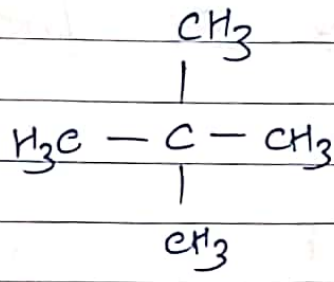 CH3
|
H3C — C — CH3
|
CH3